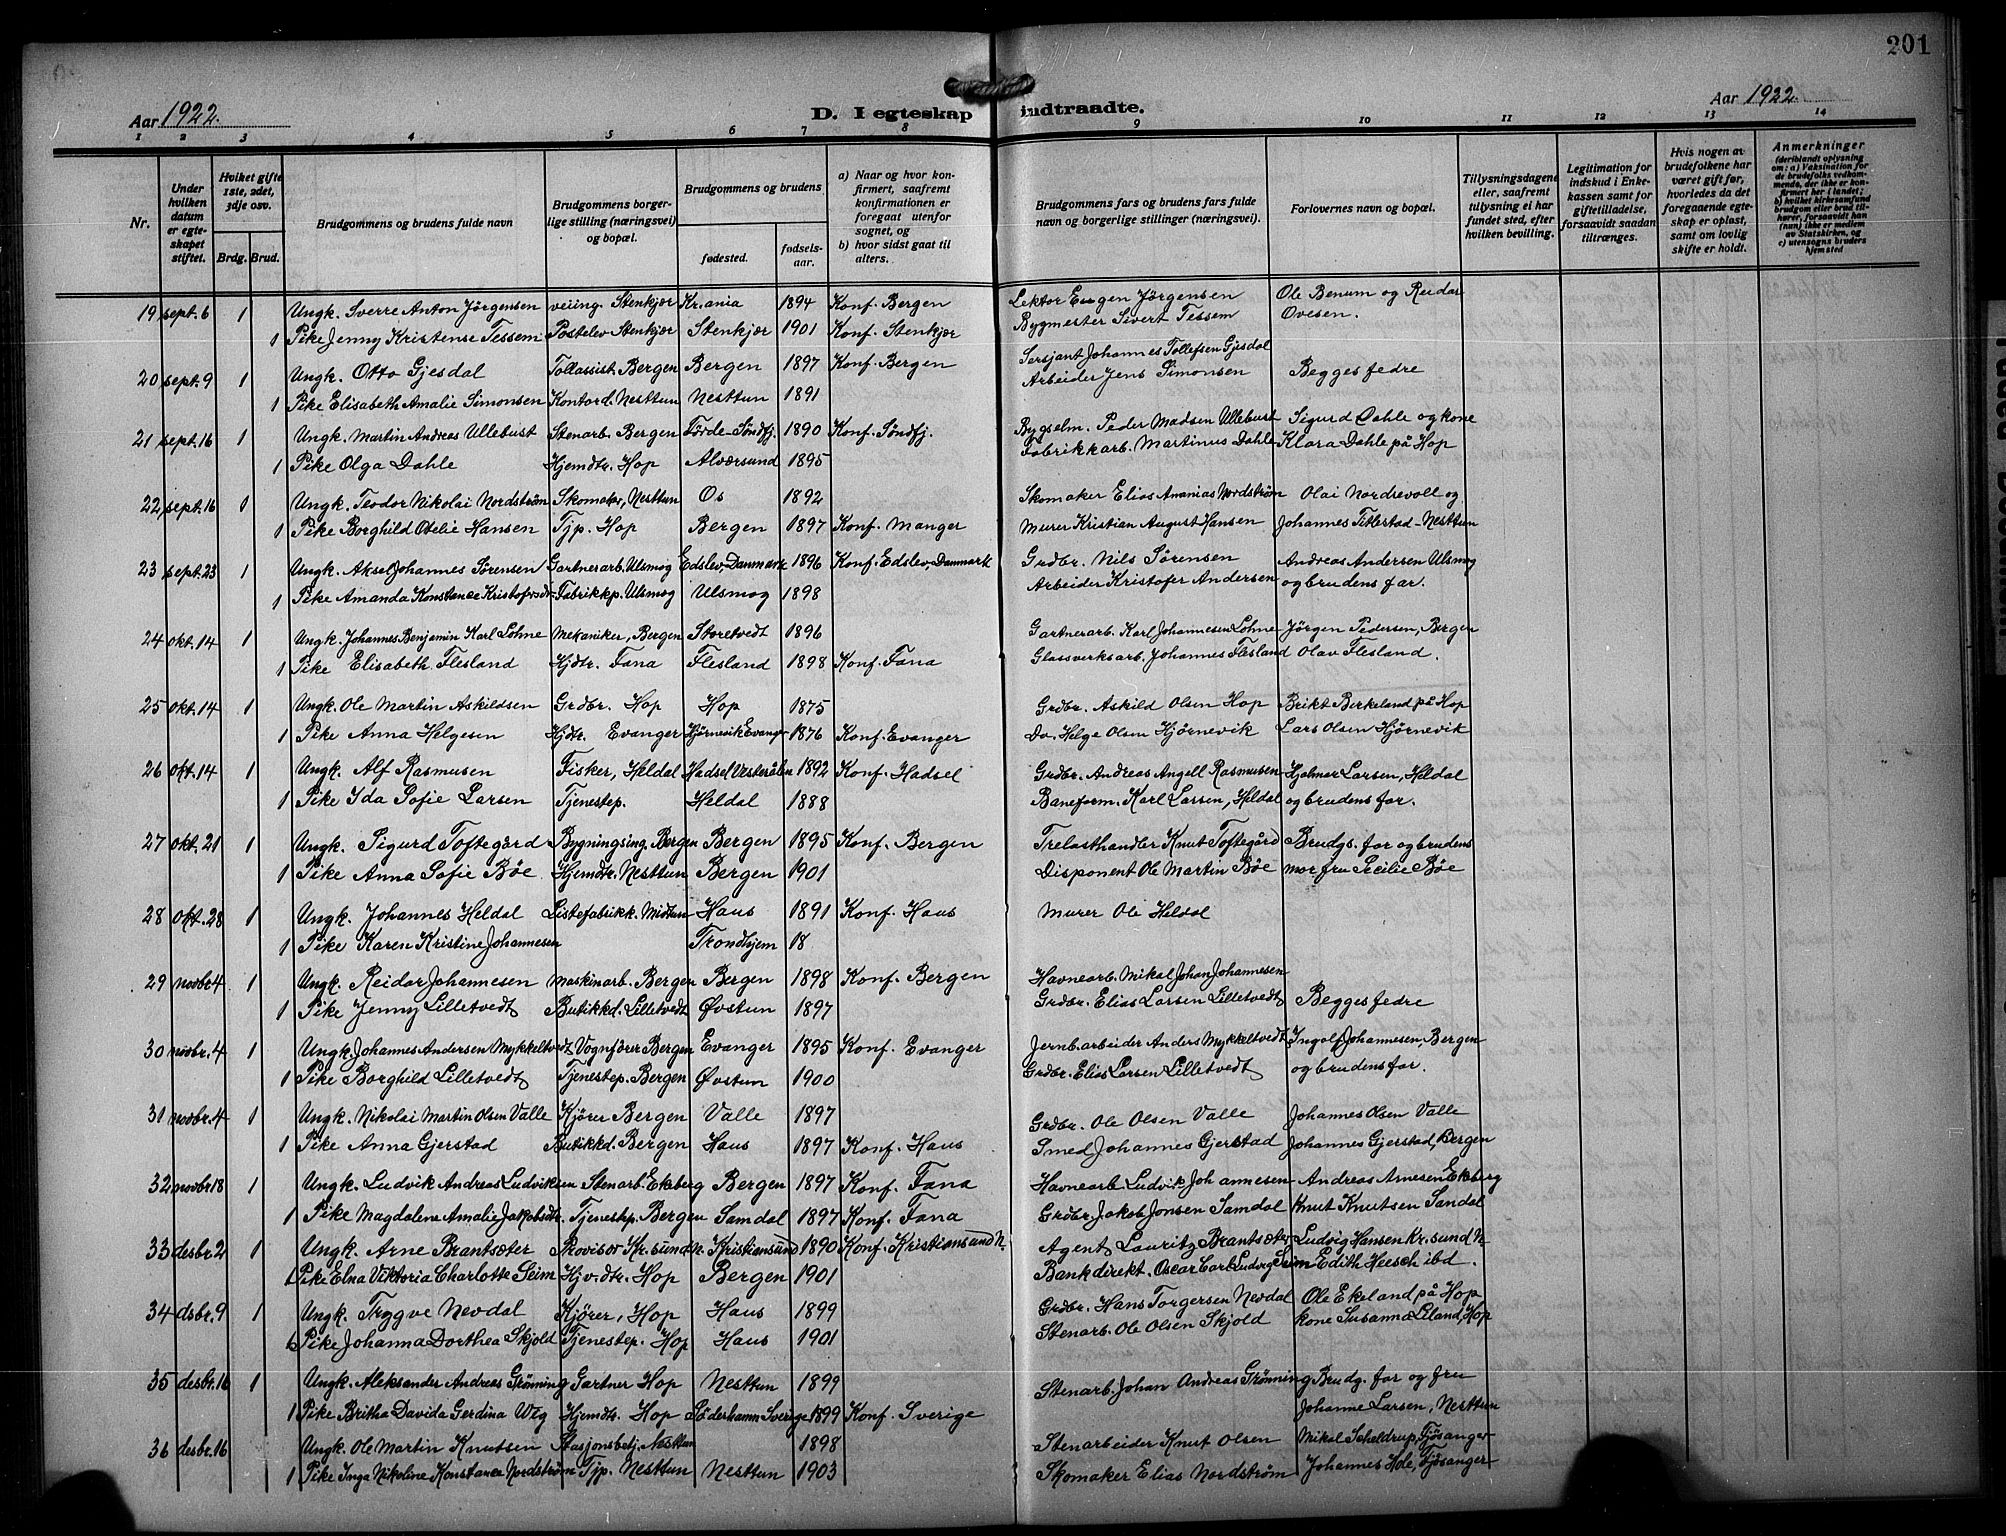 201
Aar 1922.
D. I egteskap indtraadte.
Aar 1922.
1 2 3 4 5 6 7 8 9 10 11 12 13 14
Nr.
Under hvilken datum er egteskapet stiftet.
Hvilket gifte 1ste, 2det, 3dje osv.
Brdg. Brud.
Brudgommens og brudens fulde navn
Brudgommens borgerlige stilling (næringsvei) og bopæl.
Brudgommens og brudens
fødested.
fødselsaar.
a) Naar og hvor konfirmert, saafremt konfirmationen er foregaat utenfor sognet, og
b) hvor sidst gaat til alters.
Brudgommens fars og brudens fars fulde navn og borgerlige stillinger (næringsvei).
Forlovernes navn og bopæl.
Tillysningsdagene eller, saafremt tillysning ei har fundet sted, efter hvilken bevilling.
Legitimation for indskud i Enkekassen samt for giftetilladelse, forsaavidt saadan tiltrænges.
Hvis nogen av brudefolkene har været gift før, hvorledes da det foregaaende egteskap er opløst, samt om lovlig skifte er holdt.
Anmerkninger
(deriblandt oplysning om: a) Vaksination for de brudefolks vedkommende, der ikke er konfirmert her i landet; b) hvilket kirkesamfund brudgom eller brud tilhører, forsaavidt han (hun) ikke er medlem av Statskirken, og c) utensogns bruders hjemsted
19 sept. 6 1 Ungk. Sverre Anton Jörgensen veiing. Stenkjær Kr.ania 1894 Konf. Bergen Lektor Eugen Jörgensen Ole Benum og Reidar
1 Pike Jenny Kristense Tessem Postelev Stenkjær Stenkjær 1901 Konf. Stenkjær Bygmester Sivert Tessem Ovesen.
20 sept. 9 1 Ungk. Otto Gjesdal Tollassist. Bergen Bergen 1897 Konf. Bergen Sersjant Johannes Tollefsen Gjesdal
1 Pike Elisabeth Amalie Simonsen Kontord. Nesttun Nesttun 1891 Arbeider Jens Simonsen Begges fedre
21 sept. 16 1 Ungk. Martin Andreas Ullebust Stenarb. Bergen Førde-Søndfj. 1890 Konf. Søndfj. Bygselm. Peder Madsen Ullebust Sigurd Dahle og kone
1 Pike Olga Dahle Hjemdtr. Hop Alværsund 1895 Fabrikkarb. Martinus Dahle Klara Dahle på Hop
22 sept. 16 1 Ungk. Teodor Nikolai Nordström Skomaker, Nesttun Os 1892 Skomaker Elias Ananias Nordström Olai Nordrevoll og
1 Pike Borghild Otelie Hansen Tjp. Hop Bergen 1897 Konf. Manger Murer Kristian August Hansen Johannes Titlestad - Nesttun
23 sept. 23 1 Ungk. Aksel Johannes Sørensen Gartnerarb. Ulsmog Edslev, Danmark 1896 Konf. Edslev, Danmark Grdbr. Nils Sørensen Andreas Andersen Ulsmog
1 Pike Amanda Konstance Kristofersdtr Fabrikkp. Ulsmog Ulsmog 1898 Arbeider Kristofer Andersen og brudens far.
24 okt. 14 1 Ungk. Johannes Benjamin Karl Lohne Mekaniker, Bergen Storetvedt 1896 Gartnerarb. Karl Johannesen Lohne Jörgen Pedersen, Bergen
1 Pike Elisabeth Flesland Hjdtr. Fana Flesland 1898 Konf. Fana Glassverksarb. Johannes Flesland Olav Flesland.
25 okt. 14 1 Ungk. Ole Martin Askildsen Grdbr. Hop Hop 1875 Grdbr. Askild Olsen Hop Brikt Birkeland på Hop
1 Pike Anna Helgesen Hjdtr. Evanger Hjörnevik Evanger 1876 Konf. Evanger Do. Helge Olsen Hjørnevik Lars Olsen Hjörnevik
26 okt. 14 1 Ungk. Alf Rasmusen Fisker, Heldal Hadsel Vesterålen 1892 Konf. Hadsel Grdbr. Andreas Angell Rasmusen Hjalmar Larsen, Heldal
1 Pike Ida Sofie Larsen Tjenestep. Heldal 1888 Baneform. Karl Larsen, Heldal og brudens far.
27 okt. 21 1 Ungk. Sigurd Toftegård Bygningsing. Bergen Bergen 1895 Konf. Bergen Trelasthandler Knut Toftegård Brudgs. far og brudens
1 Pike Anna Sofie Böe Hjemdtr. Nesttun Bergen 1901 Disponent Ole Martin Böe mor, fru Cecilie Böe
28 okt. 28 1 Ungk. Johannes Heldal Listefabrikk. Midtun Haus 1891 Konf. Haus Murer Ole Heldal
1 Pike Karen Kristine Johannesen Trondhjem 18
29 novbr. 4 1 Ungk. Reidar Johannesen Maskinarb. Bergen Bergen 1898 Konf. Bergen Havnearb. Mikal Johan Johannesen
1 Pike Jenny Lilletvedt Butikkd. Lilletvedt Øvstun 1897 Grdbr. Elias Larsen Lilletvedt Begges fedre
30 novbr. 4 1 Ungk. Johannes Andersen Mykkeltvedt Vognfører Bergen Evanger 1895 Konf. Evanger Jernb.arbeider Anders Mykkeltvedt Ingolf Johannesen, Bergen
1 Pike Borghild Lilletvedt Tjenestep. Bergen Øvstun 1900 Grdbr. Elias Larsen Lilletvedt og brudens far.
31 novbr. 4 1 Ungk. Nikolai Martin Olsen Valle Kjører Bergen Valle 1897 Grdbr. Ole Olsen Valle Johannes Olsen Valle
1 Pike Anna Gjerstad Butikkd. Bergen Haus 1897 Konf. Haus Smed Johannes Gjerstad Johannes Gjerstad, Bergen
32 novbr. 18 1 Ungk. Ludvik Andreas Ludviksen Stenarb. Ekberg Bergen 1897 Konf. Fana Havnearb. Ludvik Johannesen Andreas Arnesen Ekberg
1 Pike Magdalene Amalie Jakobsdtr. Tjenestep. Bergen Samdal 1897 Konf. Fana Grdbr. Jakob Jonsen Samdal Knut Knutsen Sandal
33 desbr. 2 1 Ungk. Arne Brantsæter Provisor Kr.sund N. Kristiansund 1890 Konf. Kristiansund N. Agent Lauritz Brantsæter Ludvig Hansen Kr.sund N.
1 Pike Elna Viktoria Charlotte Seim Hjv.dtr. Hop Bergen 1901 Bankdirekt. Oscar Carl Ludvig Seim Edith Heesch ibd.
34 dsbr. 9 1 Ungk. Trygve Nevdal Kjører, Hop Haus 1899 Grdbr. Hans Torgersen Nevdal Ole Ekeland på Hop
1 Pike Johanna Dorthea Skjold Tjenestep. Hop Haus 1901 Stenarb. Ole Olsen Skjold kone Susanna Liland, Hop
35 desbr. 16 1 Ungk. Aleksander Andreas Grønning Gartner Hop Nesttun 1899 Stenarb. Johan Andreas Grønning Brudg. far og fru
1 Pike Britha Davida Gerdina Wig Hjemdtr. Hop Söderhamn Sverige 1899 Konf. Sverige Johanne Larsen, Nesttun
36 desbr. 16 Ungk. Ole Martin Knutsen Stasjonsbetj. Nesttun 1898 Stenarbeider Knut Olsen Mikal Scheldrup, Fjösanger
1 Pike Inga Nikoline Konstance Nordström Tjp. Nesttun Nesttun 1903 Skomaker Elias Nordström Johannes Hole, Fjösanger